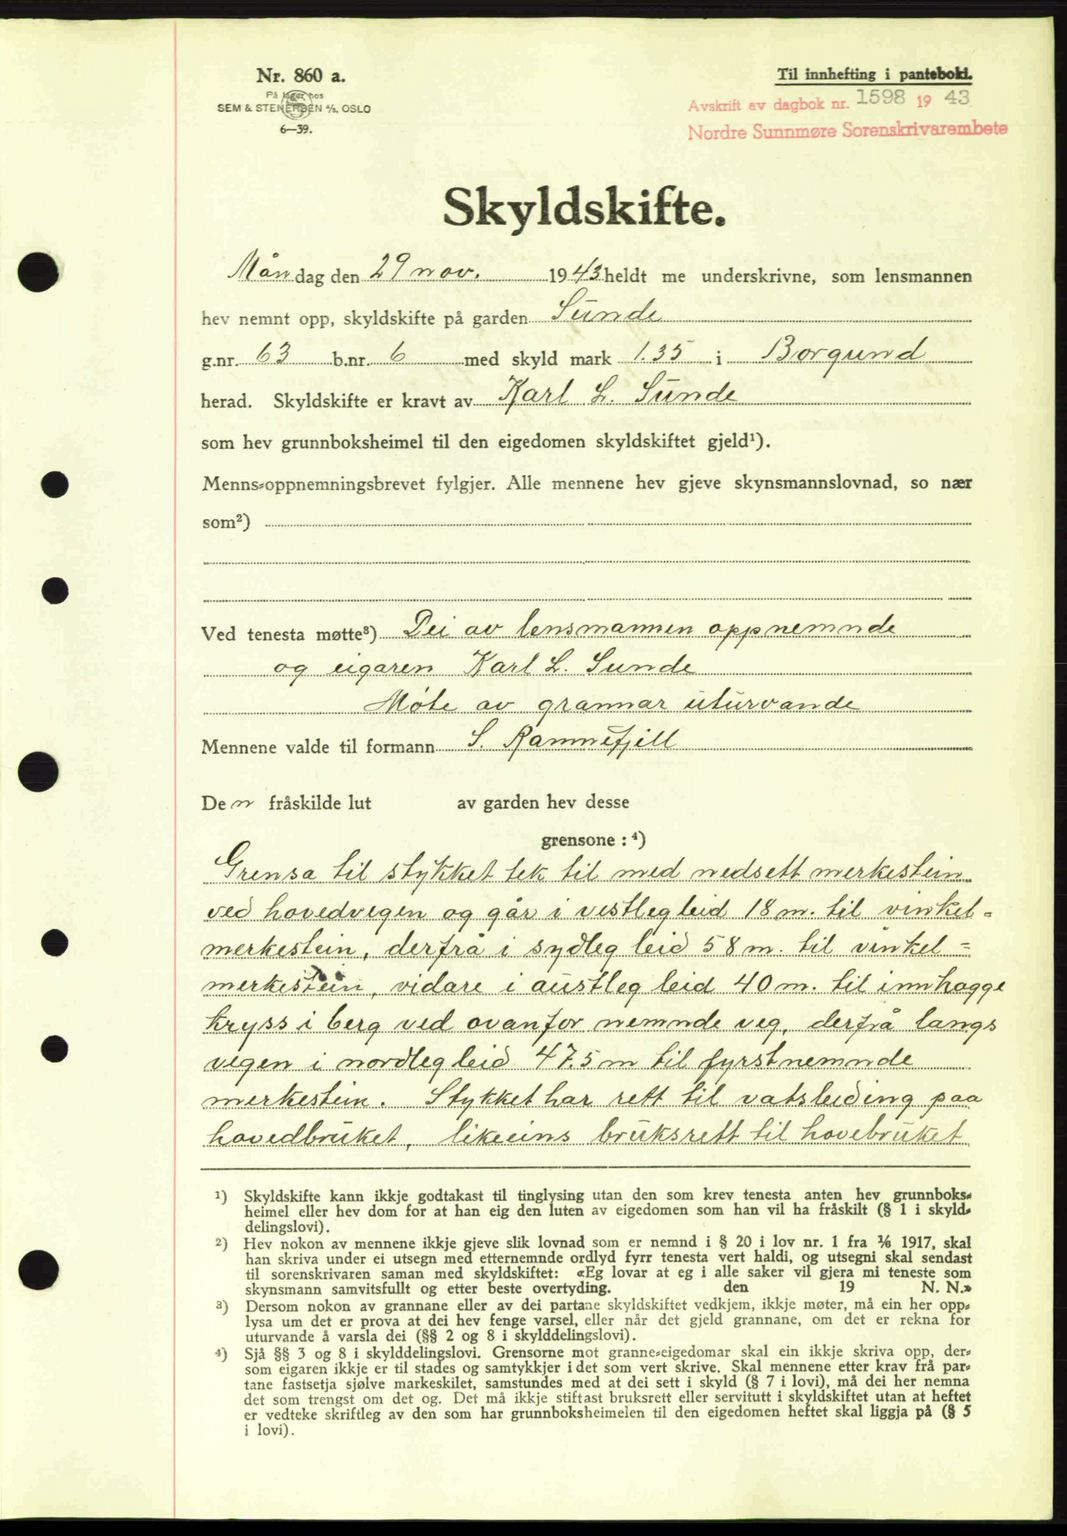 Nr. 860 a.
På lager hos
SEM & STENERSEN A/S, OSLO
6—39.
Til innhefting i pantebok.
Avskrift av dagbok nr. 1598 19 43
Nordre Sunnmøre Sorenskrivarembete
Skyldskifte.
Måndag den 29 nov. 1943 heldt me underskrivne, som lensmannen
hev nemnt opp, skyldskifte på garden Sunde
g.nr. 63 b.nr. 6 med skyld mark 1.35 i Borgund
herad. Skyldskifte er kravt av Karl L. Sunde
som hev grunnboksheimel til den eigedomen skyldskiftet gjeld¹).
Menns-oppnemningsbrevet fylgjer. Alle mennene hev gjeve skynsmannslovnad, so nær
som²)
Ved tenesta møtte³) Dei av lensmannen oppnemnde
og eigaren Karl L. Sunde
Møte av grannar uturvande
Mennene valde til formann S. Rammefjell
Den fråskilde lut av garden hev desse
grensone : ⁴)
Grensa til stykket tek til med nedsett merkestein
ved hovedvegen og går i vestleg leid 18 m. til vinkel-
merkestein, derfrå i sydleg leid 58 m. til vinkel =
merkestein, vidare i austleg leid 40 m. til innhogge
kryss i berg ved ovanfor nemnde veg, derfrå langs
vegen i nordleg leid 47.5 m til fyrstnemnde
merkestein. Stykket har rett til vatsleiding paa
hovedbruket, likeeins bruksrett til hovebruket
¹) Skyldskifte kann ikkje godtakast til tinglysing utan den som krev tenesta anten hev grunnboks-
heimel eller hev dom for at han eig den luten av eigedomen som han vil ha fråskilt (§ 1 i skyld-
delingslovi).
²) Hev nokon av mennene ikkje gjeve slik lovnad som er nemnd i § 20 i lov nr. 1 fra ⅙ 1917, skal
han skriva under ei utsegn med etternemnde ordlyd fyrr tenesta vert haldi, og utsegni skal sendast
til sorenskrivaren saman med skyldskiftet: «Eg lovar at eg i alle saker vil gjera mi teneste som
skynsmann samvitsfullt og etter beste overtyding. den 19 N. N.»
³) Dersom nokon av grannane eller av dei partane skyldskiftet vedkjem, ikkje møter, må ein her opp-
lysa um det er prova at dei hev fenge varsel, eller når det gjeld grannane, om det er rekna for
uturvande å varsla dei (§§ 2 og 8 i skylddelingslovi).
⁴) Sjå §§ 3 og 8 i skylddelingslovi. Grensorne mot granne-eigedomar skal ein ikkje skriva opp, der-
som eigaren ikkje er til stades og samtykkjer i det som vert skrive. Skal mennene etter krav frå par-
tane fastsetja sjølve markeskilet, samstundes med at dei sett i skyld (§ 7 i lovi), må dei her nemna
det som trengst om det og. Det må ikkje stiftast bruksrett eller servitutt i skyldskiftet utan at heftet
er vedteke skriftleg av den som har grunnboksheimelen til den eigedomen heftet skal liggja på (§ 5
i lovi).